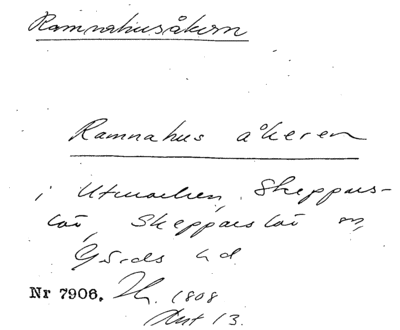 Ramnahusåkern
Ramnahus åkeren
i Utmarken, Skeppars-
löv, Skepparslöv sn,
Gärds hd
Nr 7906. 1808
Akt 13.